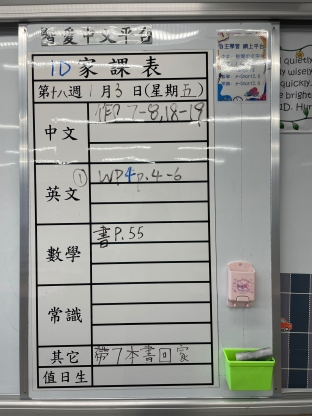 智愛中文平台
1D 家課表
第十八週 1月3日(星期五)
中文 作P.7-8,18-19
英文 ① WP4 p.4-6
數學 書P.55
常識
其它 帶7本書回家
值日生
自主學習 網上平台
quietly
wisely
quickly.